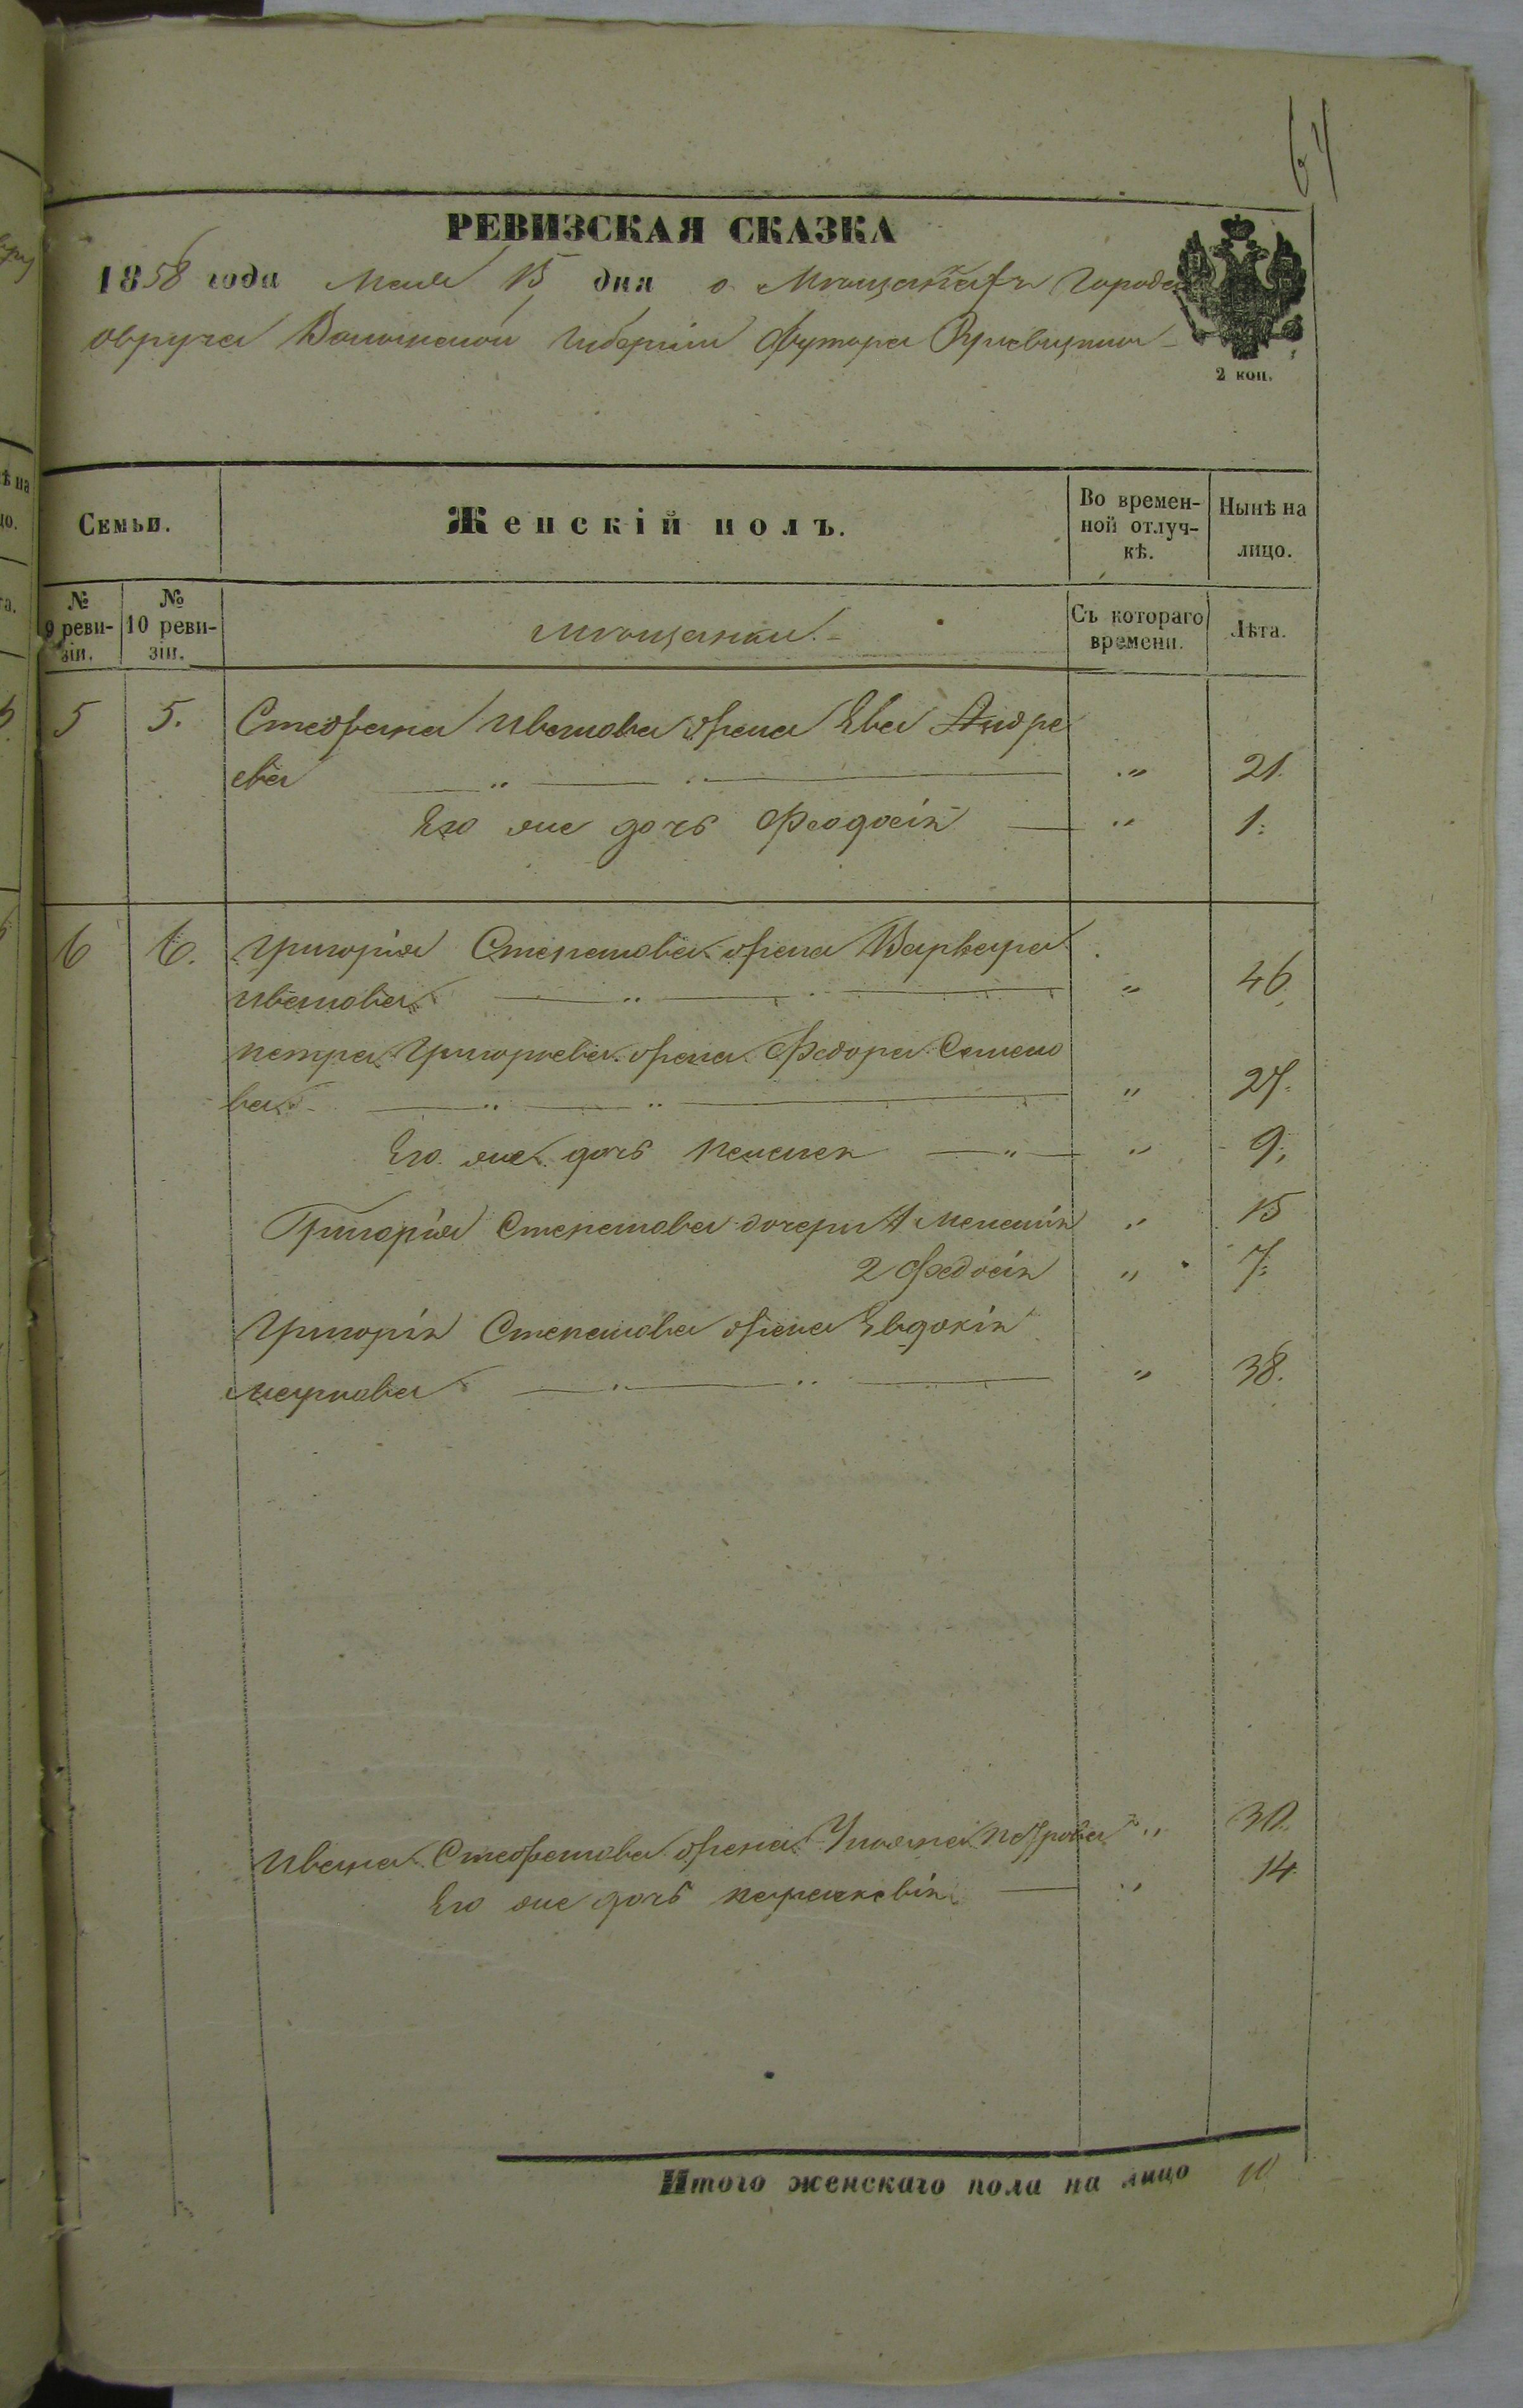 64
РЕВИЗСКАЯ СКАЗКА
1858 года Маія 15 дня о Мѣщанахъ Города
Овруча Волынской Губерніи Футора
2 коп.
Семьи.
Женскій полъ.
Во времен-
ной отлуч-
кѣ.
Нынѣ на
лицо.
№
9 реви-
зіи.
№
10 реви-
зіи.
мѣщанки.
Съ котораго
времени.
Лѣта.
5 5. Стефана Иванова жена Ева Андре
ева " 21.
Его же дочь Феодосія " 1.
6 6. Григорія Степанова жена Варвара
Иванова " 46.
Петра Григорьева жена Федора Семено
ва " 27.
Его же дочь Пелагея " 9.
Григорія Степанова дочери 1 Меланія " 15
2 Федосія " 7.
Григорія Степанова жена Евдокія
Маркова " 38.
Ивана Стефанова жена Ульяна Петрова " 30.
Его же дочь Параскевія " 14.
Итого женскаго пола на лицо 10